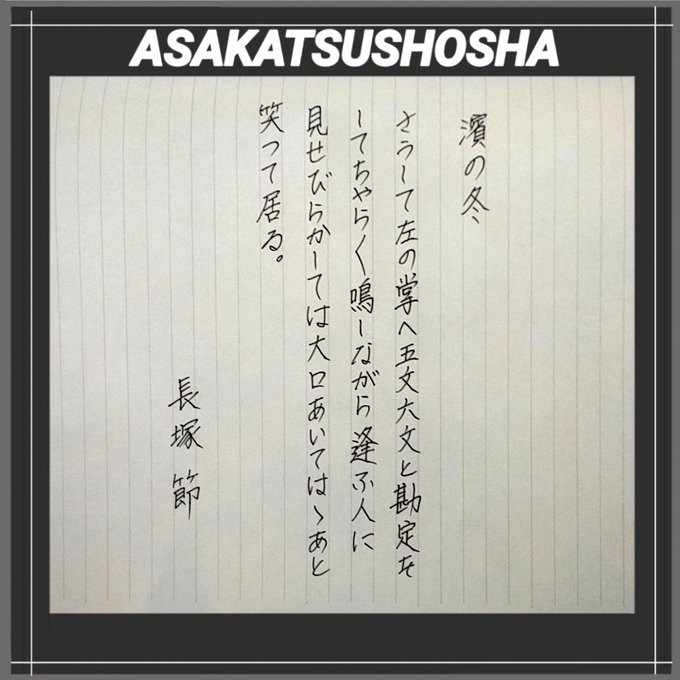 ASAKATSUSHOSHA
濱の冬
さうして左の掌へ五文六文と勘定を
してちゃらく鳴しながら逢ふ人に
見せびらかしては大口あいてはゝあと
笑って居る。
長塚 節